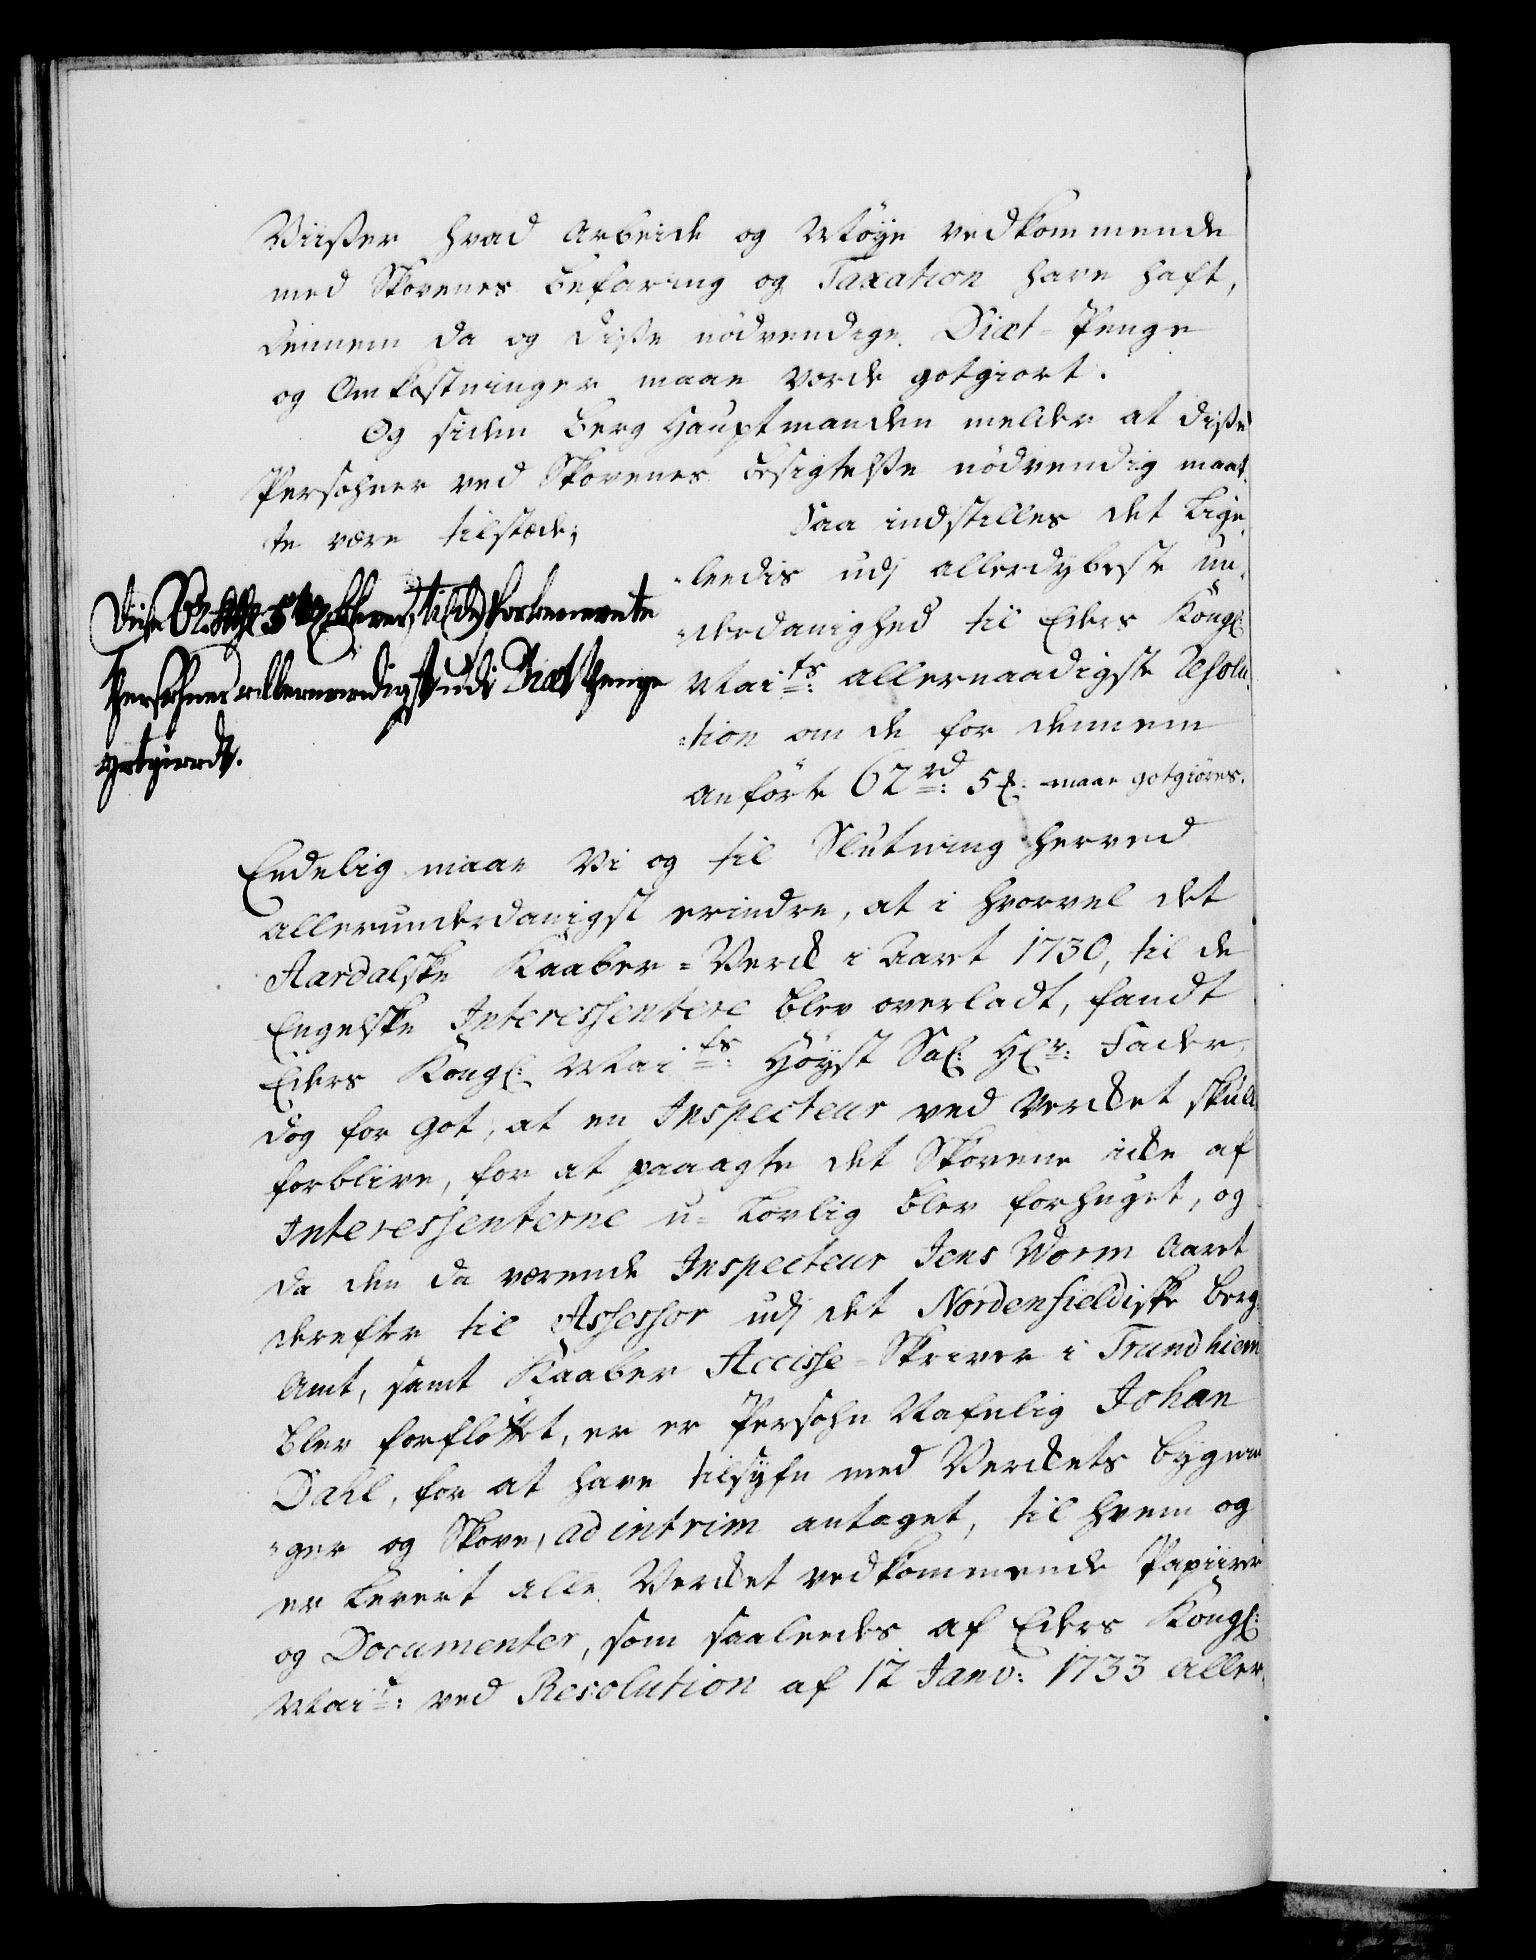 Viißer hvad Arbeide og Møye vedkommende
med Skovenes befaring og Taxation have haft,
dennem da og diße nödvendige Diæt-Penge
og Omkostninger maae vorde gotgiort.
Og siden Berg Hauptmanden melder at diße
Persohner ved Skovenes besigtelße nödvendig maat-
te være tilstæde;
Saa indstilles det Lige-
leedis udj allerdybeste un-
derdanighed til Eders Kongl:
Maits: allernaadigste Resolu-
tion om de for dennem
anförte 62 rd: 5 ß: maae gotgiöres.
Diße 62 5 bliver til de
Persohner allernaadigst udi Diæt Penge
gotgiordt.
Endelig maae Vi og til Slutning herved
allerunderdanigst erindre, at i hvorvel det
Aardalske Kaaber-Verk i Aaret 1730, til de
Engelske Interessentere blev overladt, fandt
Eders Kongl: Maits: Höyst Sal: Hr: Fader,
dog for got, at en Inspecteur ved Verket skulle
forblive, for at paaagte det Skovene icke af
Interessenterne u-Lovlig blev forhuget, og
da den da værende Inspecteur Jens Worm Aaret
derefter til Assessor udj det Nordenfieldiske berg
Amt, samt Kaaber Accisse-Skriver i Trundhiem
blev forflöttet, er er Persohn Nafnlig Johan
Dahl, for at have tilsyfn med Verkets bygnin-
ger og Skove, ad intrim antaget, til hvem og
er Leverit alle Verket vedkommende Papiirer
og Documenter, som saaleedes af Eders Kongl:
Mait: ved Resolution af 12 Janv: 1733 aller-